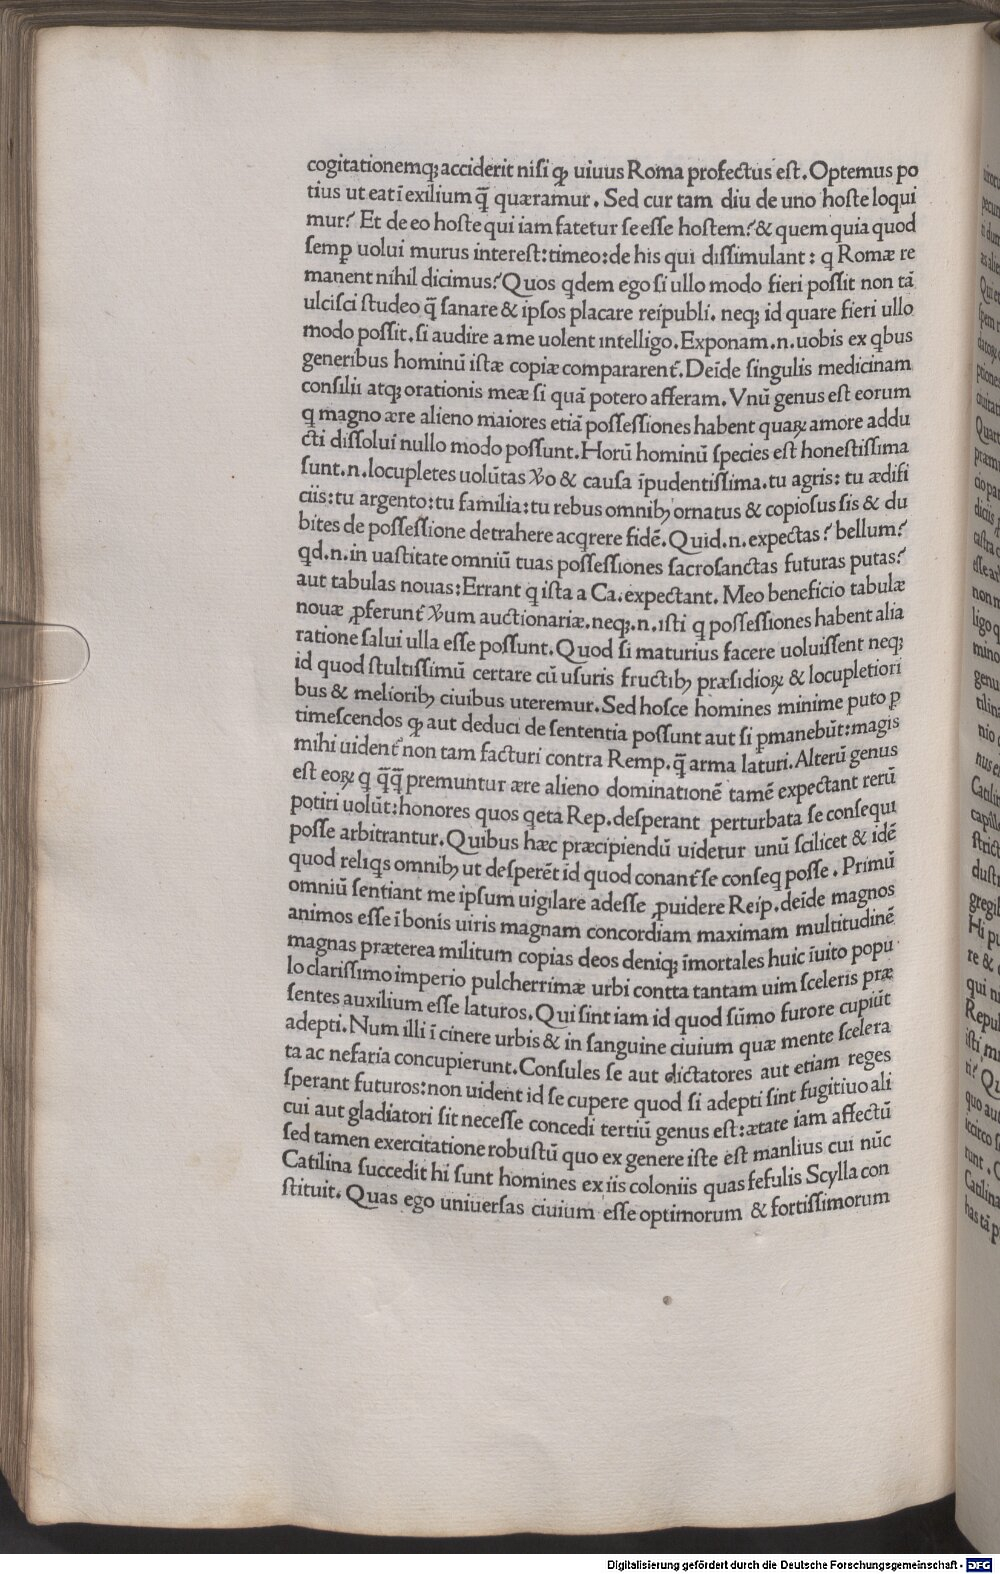 cogitationemqꝫ acciderit niſi ꝙ uiuus Roma profectus eſt. Optemus po
tius ut eat ī exilium q̄ quæramur. Sed cur tam diu de uno hoſte loqui
mur? Et de eo hoſte qui iam fatetur ſe eſſe hoſtem? & quem quia quod
ſemꝑ uolui murus intereſt: timeo: de his qui diſſimulant: q Romæ re
manent nihil dicimus? Quos qdem ego ſi ullo modo fieri poſſit non tā
ulciſci ſtudeo q̄ ſanare & ipſos placare reipubli. neqꝫ id quare fieri ullo
modo poſſit. ſi audire a me uolent intelligo. Exponam .n. uobis ex qbus
generibus hominū iſtæ copiæ compararent᷑. Deīde ſingulis medicinam
conſilii atqꝫ orationis meæ ſi quā potero afferam. Vnū genus eſt eorum
q magno ære alieno maiores etiā poſſeſſiones habent quaꝝ amore addu
cti diſſolui nullo modo poſſunt. Horū hominū ſpecies eſt honeſtiſſima
ſunt .n. locupletes uolūtas ꝟo & cauſa īpudentiſſima. tu agris: tu ædifi
ciis: tu argento: tu familia: tu rebus omnibꝫ ornatus & copioſus ſis & du
bites de poſſeſſione detrahere acqrere fidē. Quid .n. expectas? bellum?
qd .n. in uaſtitate omniū tuas poſſeſſiones ſacroſanctas futuras putas?
aut tabulas nouas: Errant q iſta a Ca. expectant. Meo beneficio tabulæ
nouæ ꝓferunt᷑ ꝟum auctionariæ. neqꝫ .n. iſti q poſſeſſiones habent alia
ratione ſalui ulla eſſe poſſunt. Quod ſi maturius facere uoluiſſent neqꝫ
id quod ſtultiſſimū certare cū uſuris fructibꝫ præſidioꝝ & locupletiori
bus & melioribꝫ ciuibus uteremur. Sed hoſce homines minime puto ꝑ
timeſcendos ꝙ aut deduci de ſententia poſſunt aut ſi ꝑmanebūt: magis
mihi uident᷑ non tam facturi contra Remp. q̄ arma laturi. Alterū genus
eſt eoꝝ q q̄q̄ premuntur ære alieno dominationē tamē expectant rerū
potiri uolūt: honores quos qeta Rep. deſperant perturbata ſe conſequi
poſſe arbitrantur. Quibus hæc præcipiendū uidetur unū ſcilicet & idē
quod reliqs omnibꝫ ut deſperēt id quod conant᷑ ſe conſeq poſſe. Primū
omniū ſentiant me ipſum uigilare adeſſe ꝓuidere Reip. deīde magnos
animos eſſe ī bonis uiris magnam concordiam maximam multitudinē
magnas præterea militum copias deos deniqꝫ īmortales huic īuito popu
lo clariſſimo imperio pulcherrimæ urbi contta tantam uim ſceleris præ
ſentes auxilium eſſe laturos. Qui ſint iam id quod ſūmo furore cupiūt
adepti. Num illi ī cinere urbis & in ſanguine ciuium quæ mente ſcelera
ta ac nefaria concupierunt. Conſules ſe aut dictatores aut etiam reges
ſperant futuros: non uident id ſe cupere quod ſi adepti ſint fugitiuo ali
cui aut gladiatori ſit neceſſe concedi tertiū genus eſt: ætate iam affectū
ſed tamen exercitatione robuſtū quo ex genere iſte eſt manlius cui nūc
Catilina ſuccedit hi ſunt homines ex iis coloniis quas feſulis Scylla con
ſtituit. Quas ego uniuerſas ciuium eſſe optimorum & fortiſſimorum
Digitalisierung gefördert durch die Deutsche Forschungsgemeinschaft - DFG